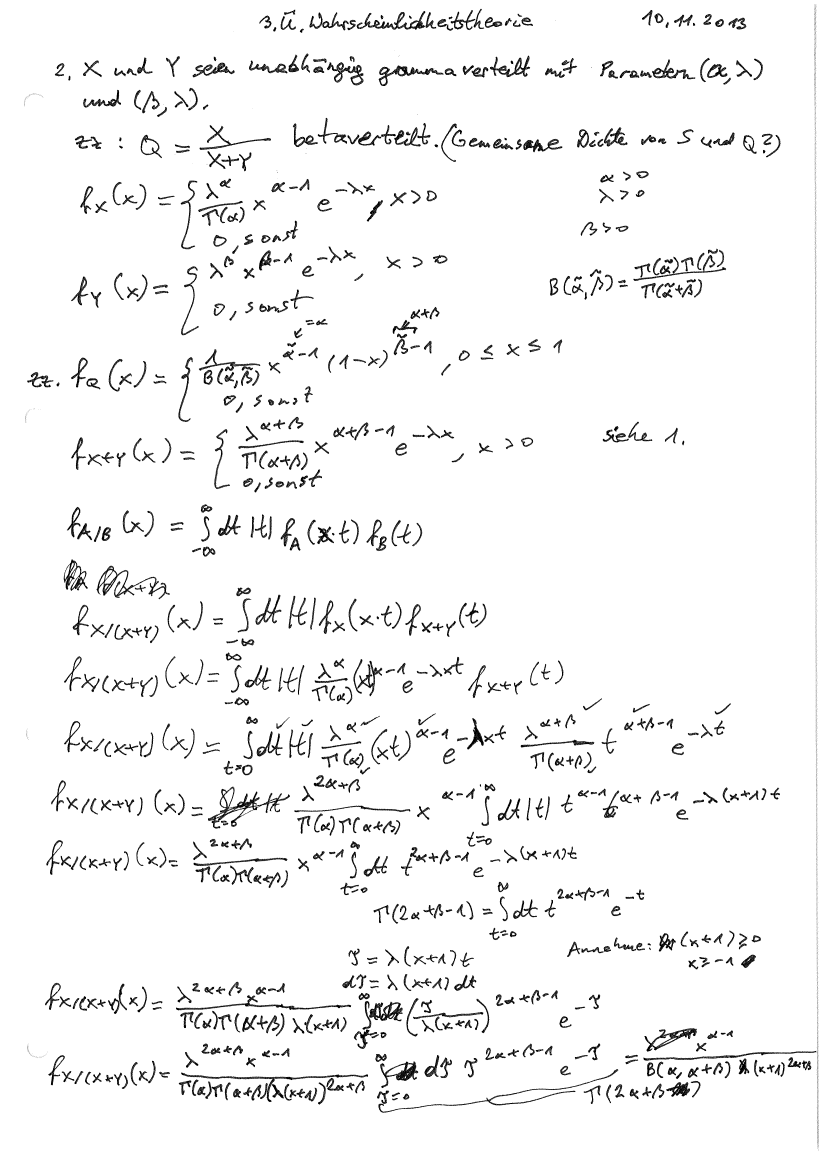 3. Ü. Wahrscheinlichkeitstheorie 10.11.2013
2, X und Y seien unabhängig grammaverteilt mit Parametern (α,λ)
und (β,λ).
zz : Q = X/(X+Y) betaverteilt. (Gemeinsame Dichte von S und Q?)
f_X(x) = { λ^α/Γ(α) x^(α-1) e^(-λx), x>0
0, sonst
α>0
λ>0
β>0
f_Y(x) = { λ^β x^(β-1) e^(-λx), x>0
0, sonst
B(α̃,β̃) = Γ(α̃)Γ(β̃)/Γ(α̃+β̃)
=α α+β
zz. f_Q(x) = { 1/B(α̃,β̃) x^(α̃-1) (1-x)^(β̃-1), 0 ≤ x ≤ 1
0, sonst
f_X+Y(x) = { λ^(α+β)/Γ(α+β) x^(α+β-1) e^(-λx), x>0 siehe 1.
0, sonst
f_A/B(x) = ∫_{-∞}^{∞} dt |t| f_A(x·t) f_B(t)
f_X/(X+Y)(x) = ∫_{-∞}^{∞} dt |t| f_X(x·t) f_X+Y(t)
f_X/(X+Y)(x) = ∫_{-∞}^{∞} dt |t| λ^α/Γ(α) (xt)^(α-1) e^(-λxt) f_X+Y(t)
f_X/(X+Y)(x) = ∫_{t=0}^{∞} dt |t| λ^α/Γ(α) (xt)^(α-1) e^(-λxt) λ^(α+β)/Γ(α+β) t^(α+β-1) e^(-λt)
f_X/(X+Y)(x) = λ^(2α+β)/(Γ(α)Γ(α+β)) x^(α-1) ∫_{t=0}^{∞} dt |t| t^(α-1) t^(α+β-1) e^(-λ(x+1)t)
f_X/(X+Y)(x) = λ^(2α+β)/(Γ(α)Γ(α+β)) x^(α-1) ∫_{t=0}^{∞} dt t^(2α+β-1) e^(-λ(x+1)t)
Γ(2α+β-1) = ∫_{t=0}^{∞} dt t^(2α+β-1) e^(-t)
Annehme: (x+1) ≥ 0
x ≥ -1
J = λ(x+1)t
dJ = λ(x+1) dt
f_X/(X+Y)(x) = λ^(2α+β) x^(α-1)/(Γ(α)Γ(α+β) λ(x+1)) ∫_{J=0}^{∞} (J/(λ(x+1)))^(2α+β-1) e^(-J)
f_X/(X+Y)(x) = λ^(2α+β) x^(α-1)/(Γ(α)Γ(α+β)(λ(x+1))^(2α+β)) ∫_{J=0}^{∞} dJ J^(2α+β-1) e^(-J) = x^(α-1)/(B(α,α+β) (x+1)^(2α+β))
Γ(2α+β)